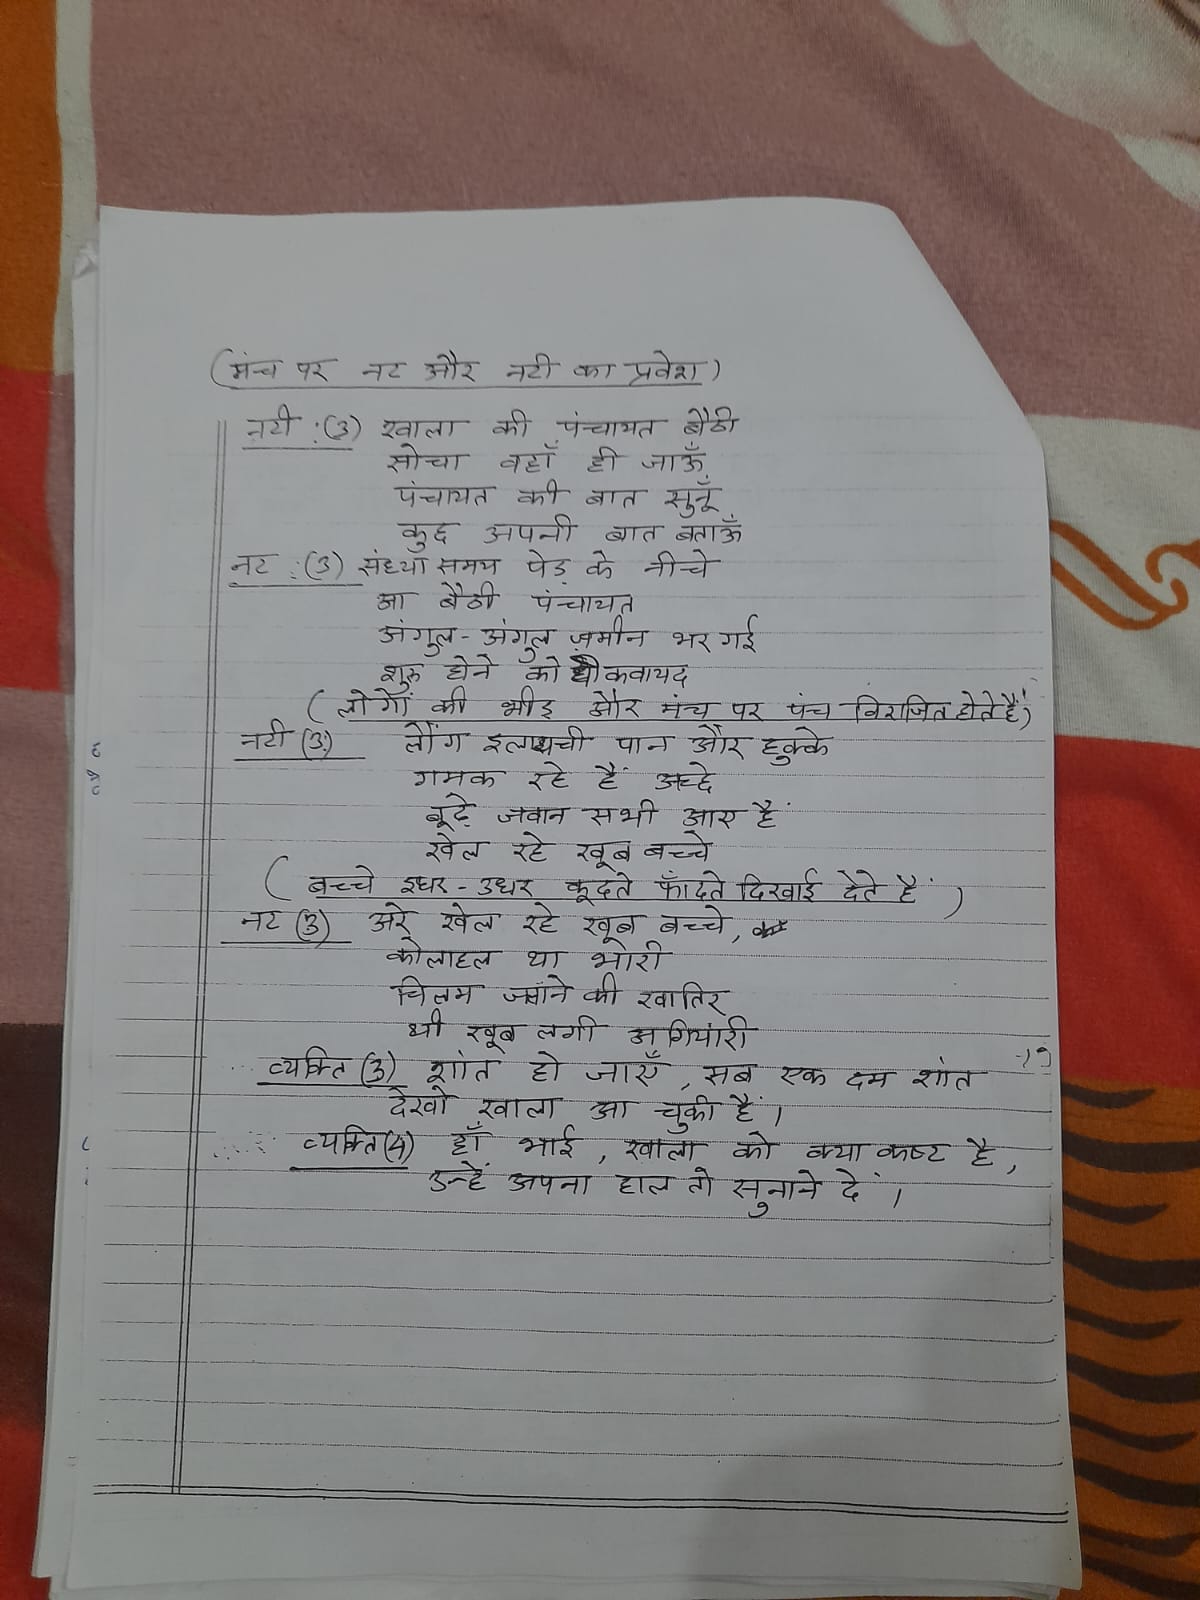 (मंच पर नट और नटी का प्रवेश)
नटी :(3) खाला की पंचायत बैठी
सोचा वहाँ ही जाऊँ
पंचायत की बात सुनूँ
कुछ अपनी बात बताऊँ
नट :(3) संध्या समय पेड़ के नीचे
आ बैठी पंचायत
अंगुल-अंगुल ज़मीन भर गई
शुरु होने को थी कवायद
(लोगों की भीड़ और मंच पर पंच विराजित होते हैं)
नटी (3) लौंग इलायची पान और हुक्के
गमक रहे हैं अच्छे
बूढ़े जवान सभी आए हैं
खेल रहे खूब बच्चे
(बच्चे इधर-उधर कूदते फाँदते दिखाई देते हैं)
नट (3) अरे खेल रहे खूब बच्चे,
कोलाहल था भारी
चिलम जमाने की खातिर
थी खूब लगी अगियारी
व्यक्ति (3) शांत हो जाएँ, सब एक दम शांत
देखो खाला आ चुकी हैं।
व्यक्ति (4) हाँ भाई, खाला को क्या कष्ट है,
उन्हें अपना हाल तो सुनाने दें।